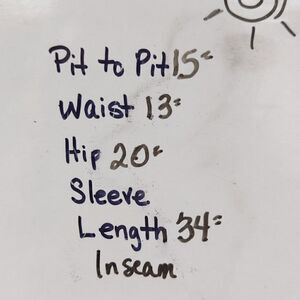 Pit to Pit 15"
Waist 13"
Hip 20"
Sleeve
Length 34"
Inseam